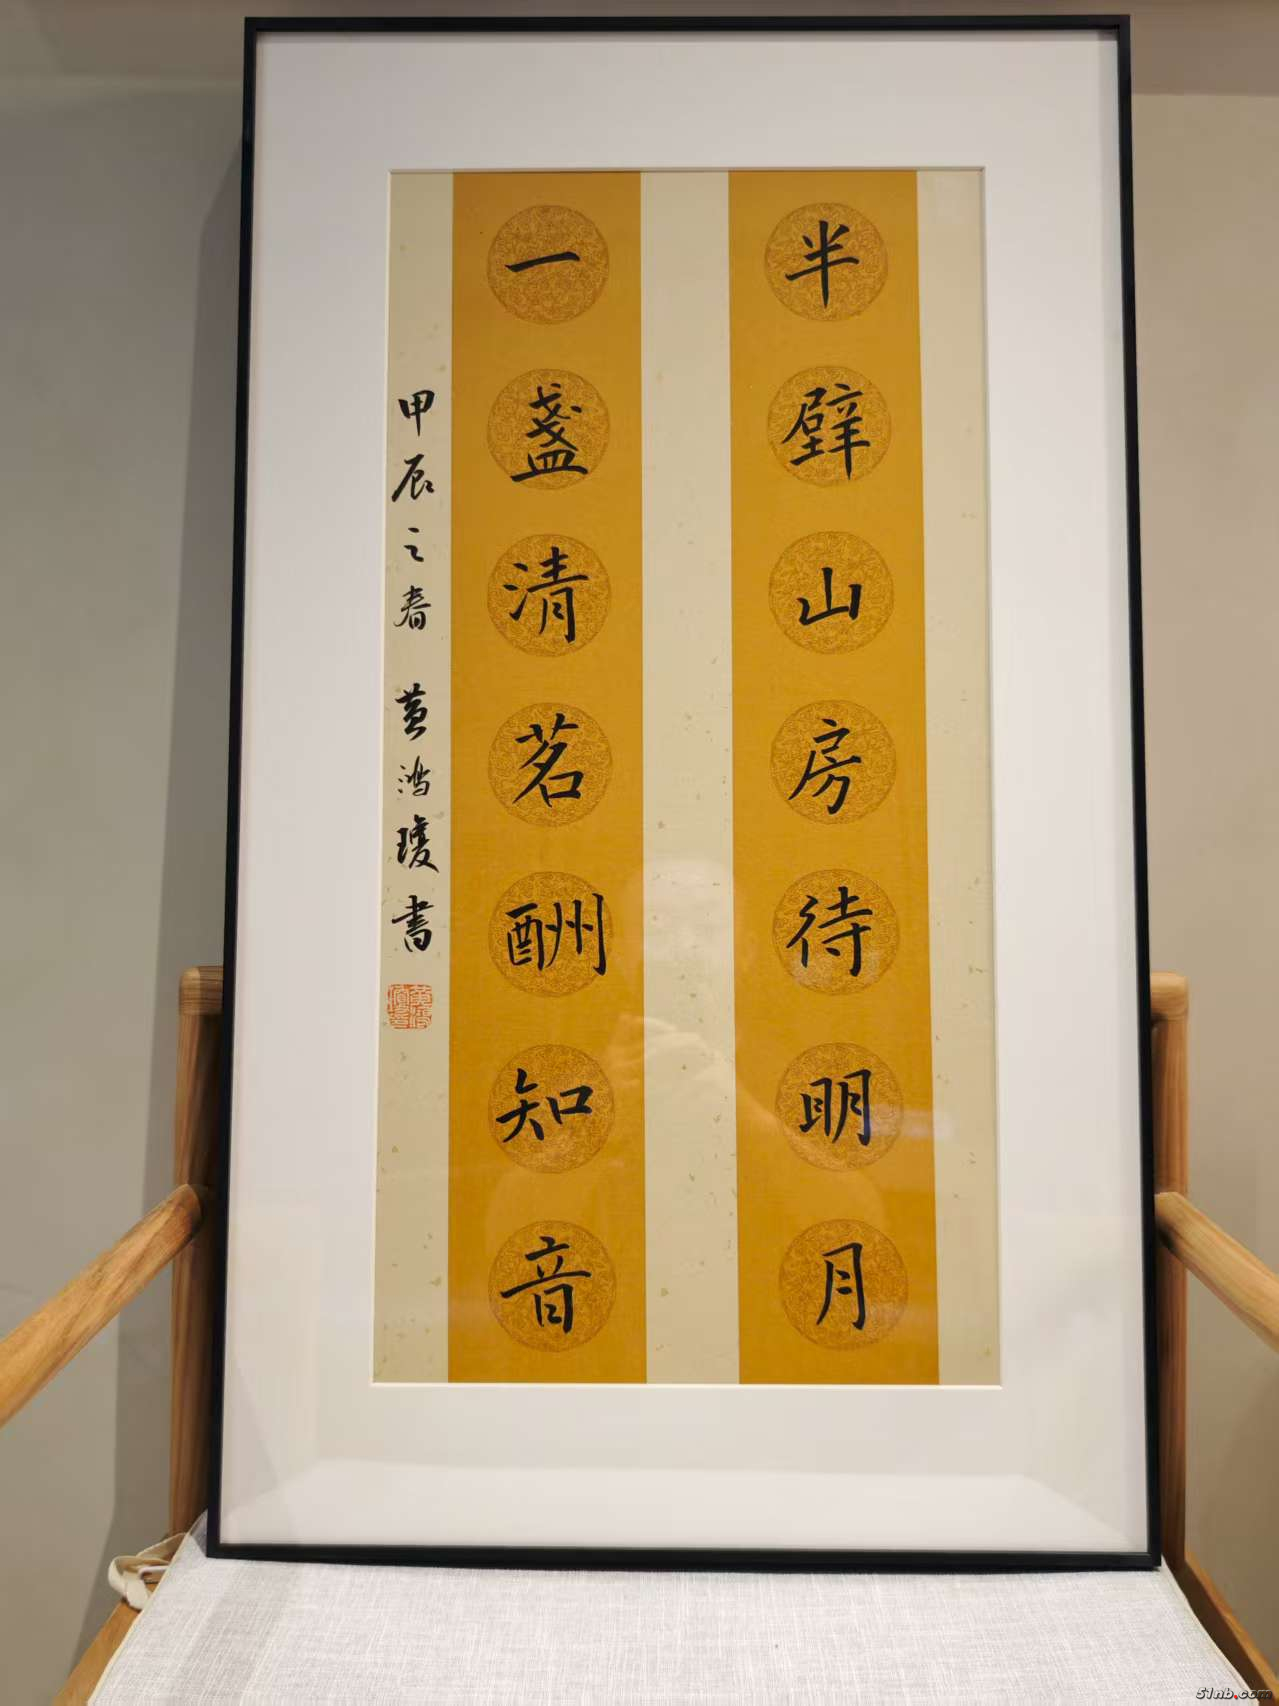 半壁山房待明月
一盏清茗酬知音
甲辰之春 黄鸿琼书
51nb.com